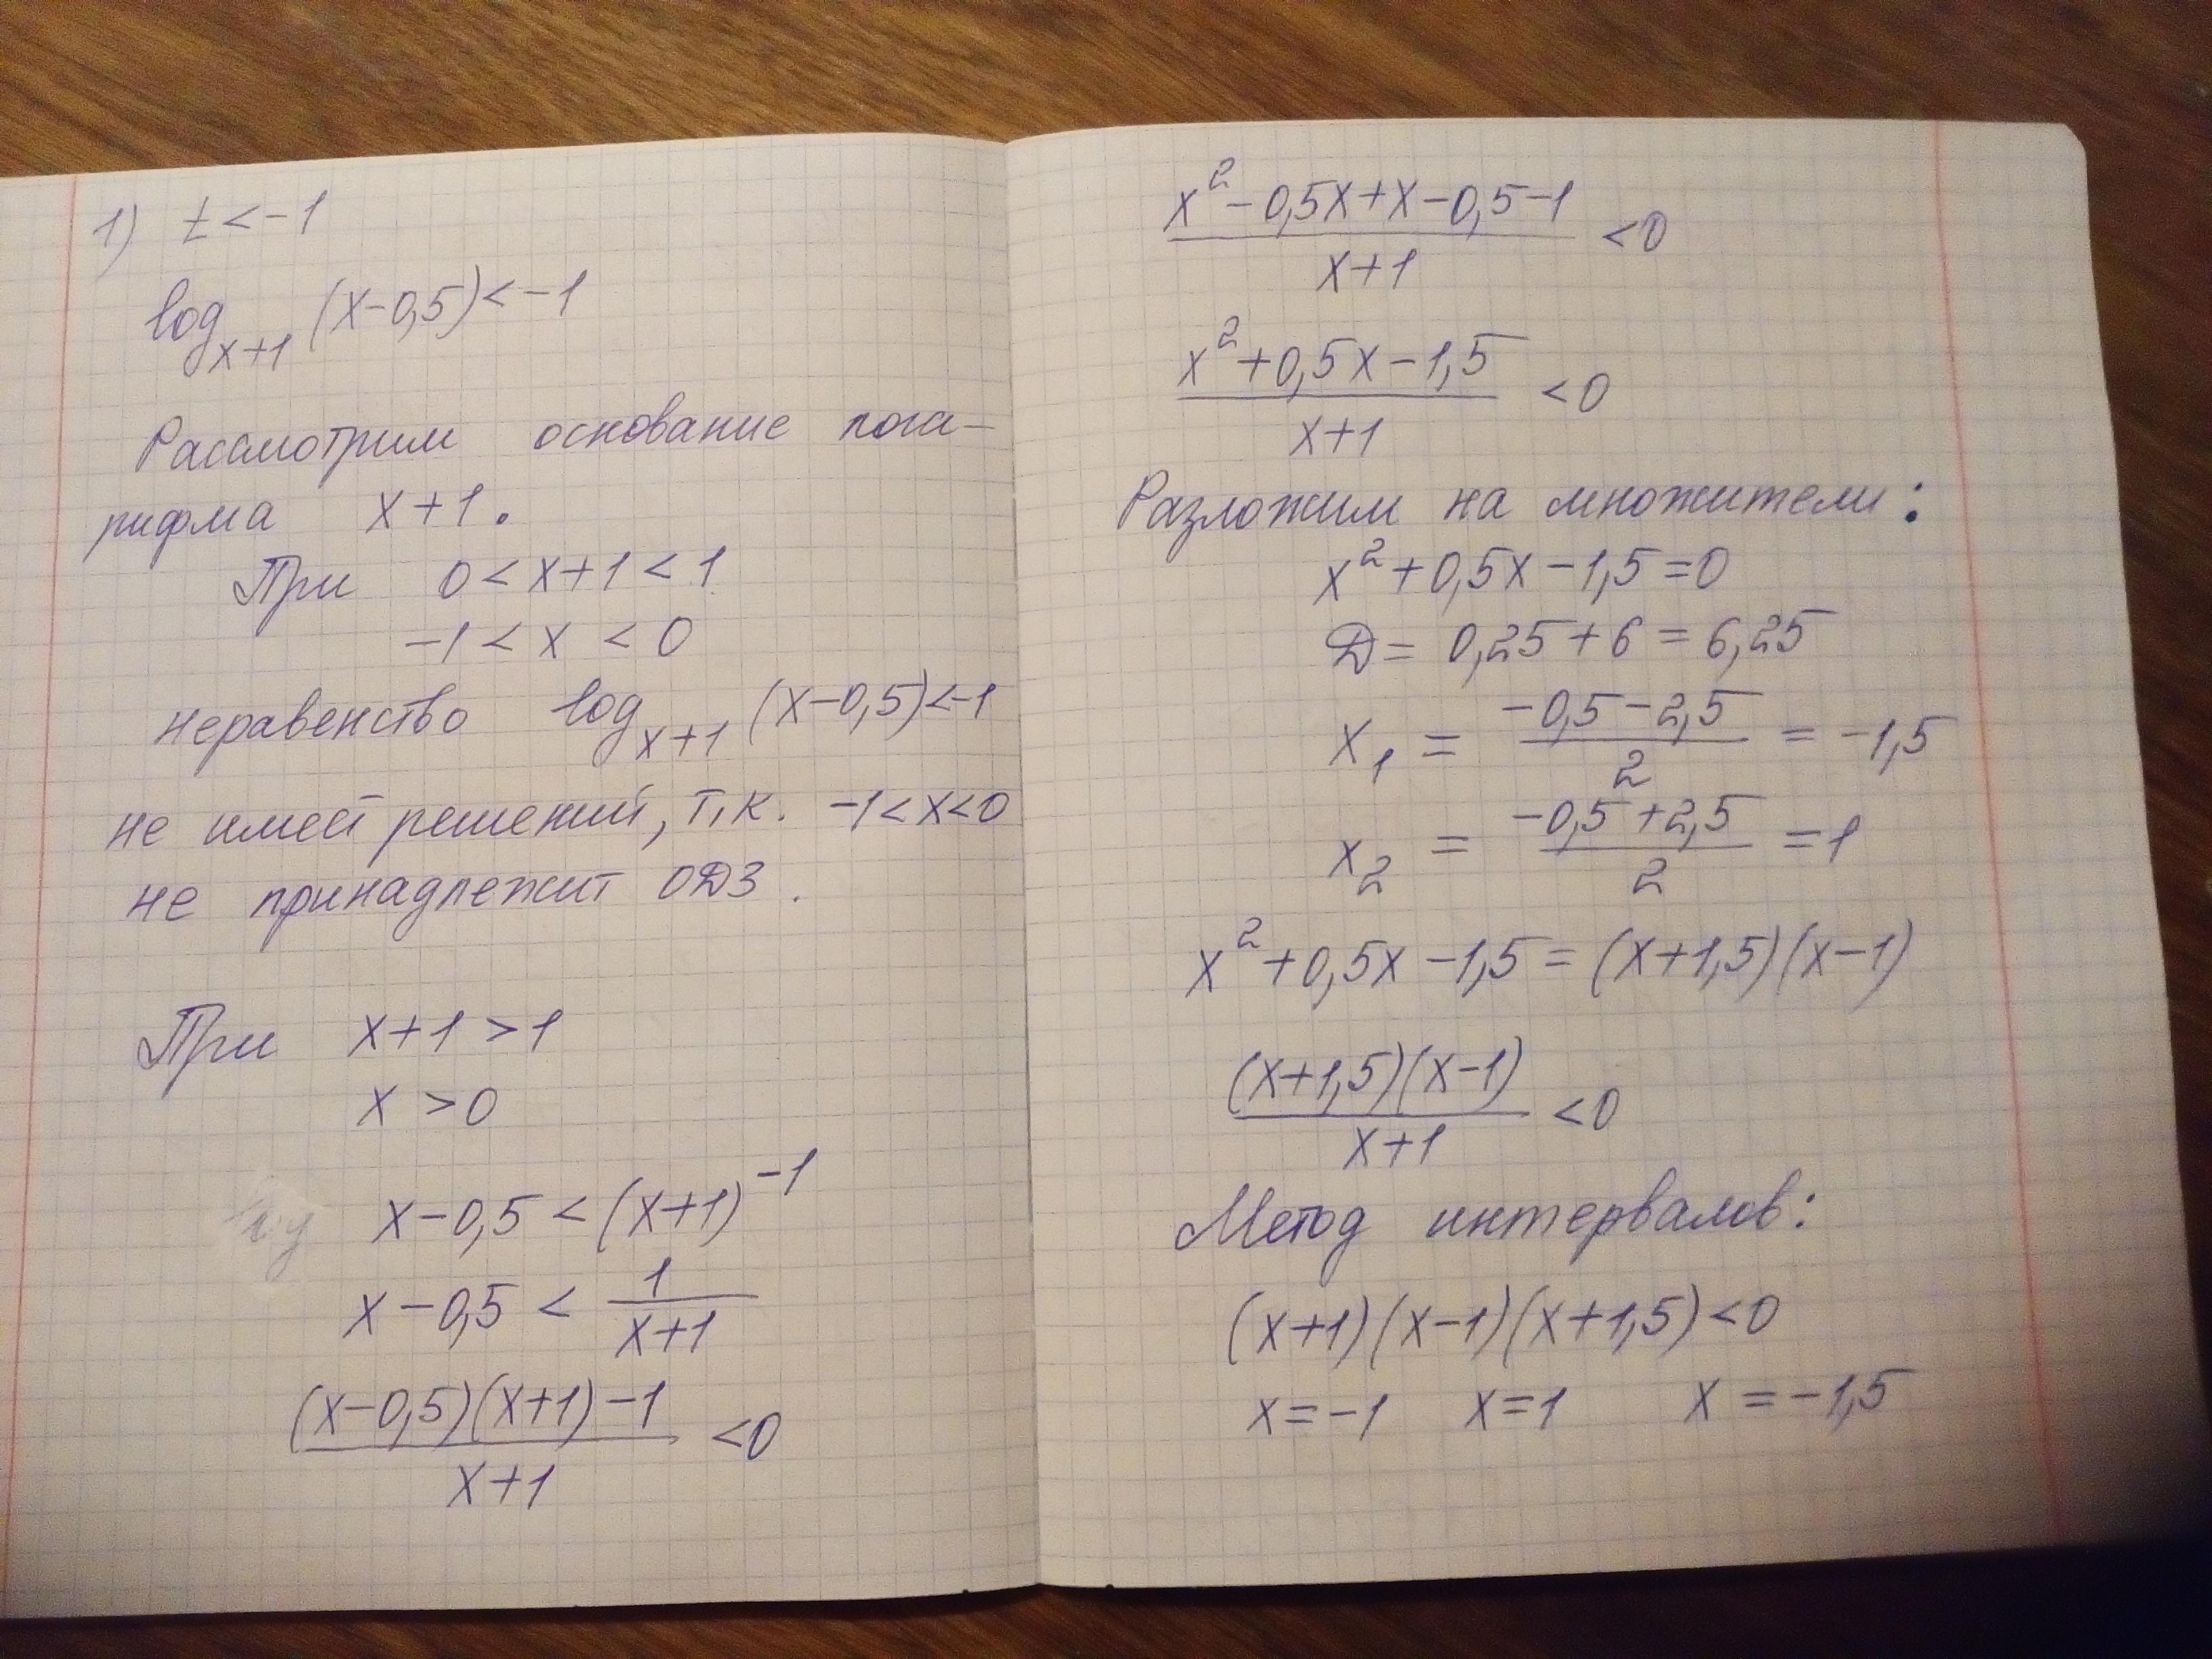 1) t < -1
log_{x+1} (x-0,5) < -1
Рассмотрим основание лога-
рифма x+1.
При 0 < x+1 < 1
-1 < x < 0
неравенство log_{x+1} (x-0,5) < -1
не имеет решений, т.к. -1 < x < 0
не принадлежит ОДЗ.
При x+1 > 1
x > 0
x-0,5 < (x+1)^{-1}
x-0,5 < \frac{1}{x+1}
\frac{(x-0,5)(x+1)-1}{x+1} < 0
\frac{x^2-0,5x+x-0,5-1}{x+1} < 0
\frac{x^2+0,5x-1,5}{x+1} < 0
Разложим на множители:
x^2+0,5x-1,5=0
Д = 0,25+6 = 6,25
x_1 = \frac{-0,5-2,5}{2} = -1,5
x_2 = \frac{-0,5+2,5}{2} = 1
x^2+0,5x-1,5 = (x+1,5)(x-1)
\frac{(x+1,5)(x-1)}{x+1} < 0
Метод интервалов:
(x+1)(x-1)(x+1,5) < 0
x=-1 x=1 x=-1,5